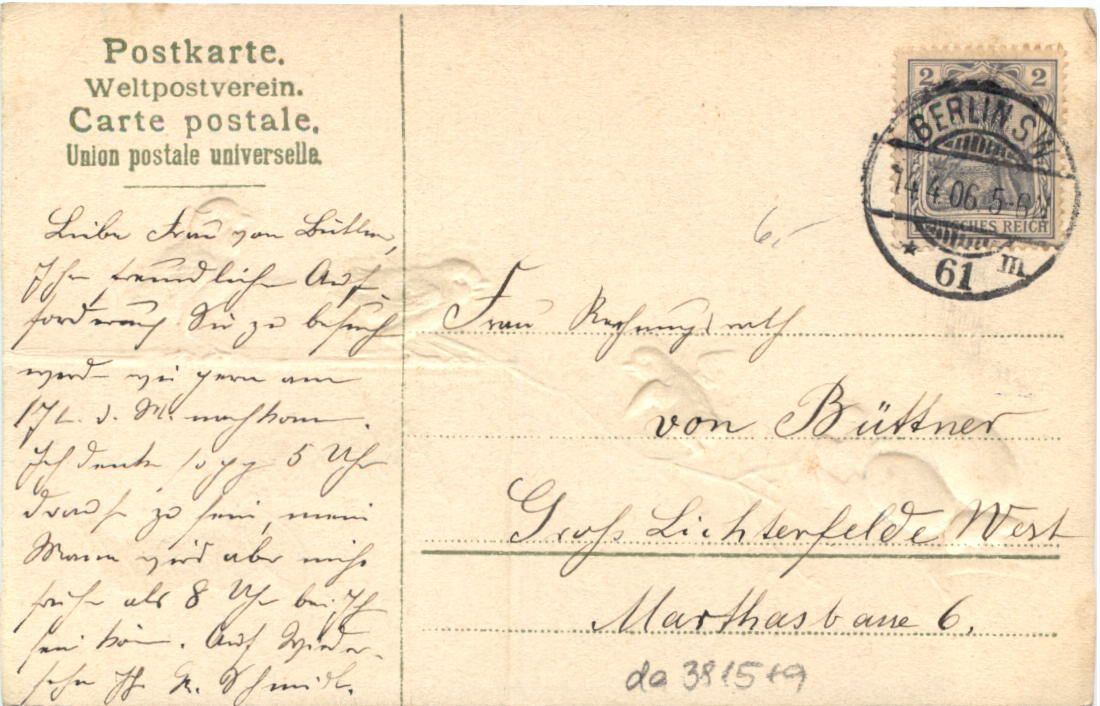 Postkarte.
Weltpostverein.
Carte postale.
Union postale universelle.
Liebe Frau von Büttner,
Ihrer freundlichen Auf-
forderung Sie zu besuchen
werden wir gern am
17t. d. M. nachkommen.
Ich denke so gg 5 Uhr
draußen zu sein, mein
Mann wird aber nicht
früher als 8 Uhr bei Ihnen
sein können. Auf Wieder-
sehn Ihre Schmidt.
2 2
DEUTSCHES REICH
BERLIN S.W.
14.4.06.5-6N
* 61 m
6,-
Frau Rechnungsrath
von Büttner
Gross Lichterfelde West
Marthastrasse 6.
da 3815+9